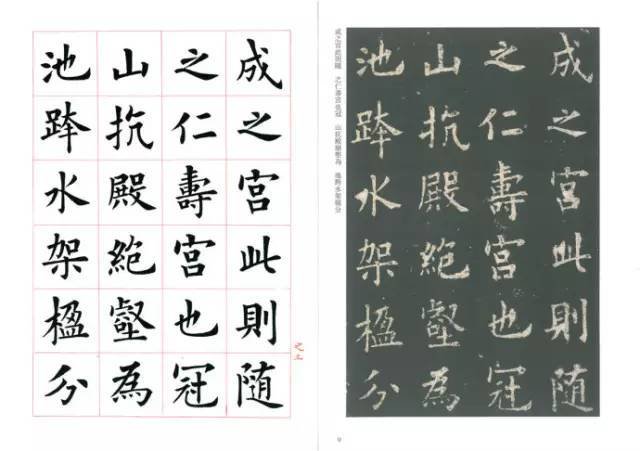 成之宮此則随
之仁壽宮也冠
山抗殿絕壑為
池跨水架楹分
成之宮此則隨 之仁壽宮也冠 山抗殿絕壑為 池跨水架楹分
9
成之宮此則随
之仁壽宮也冠
山抗殿絕壑為
池跨水架楹分